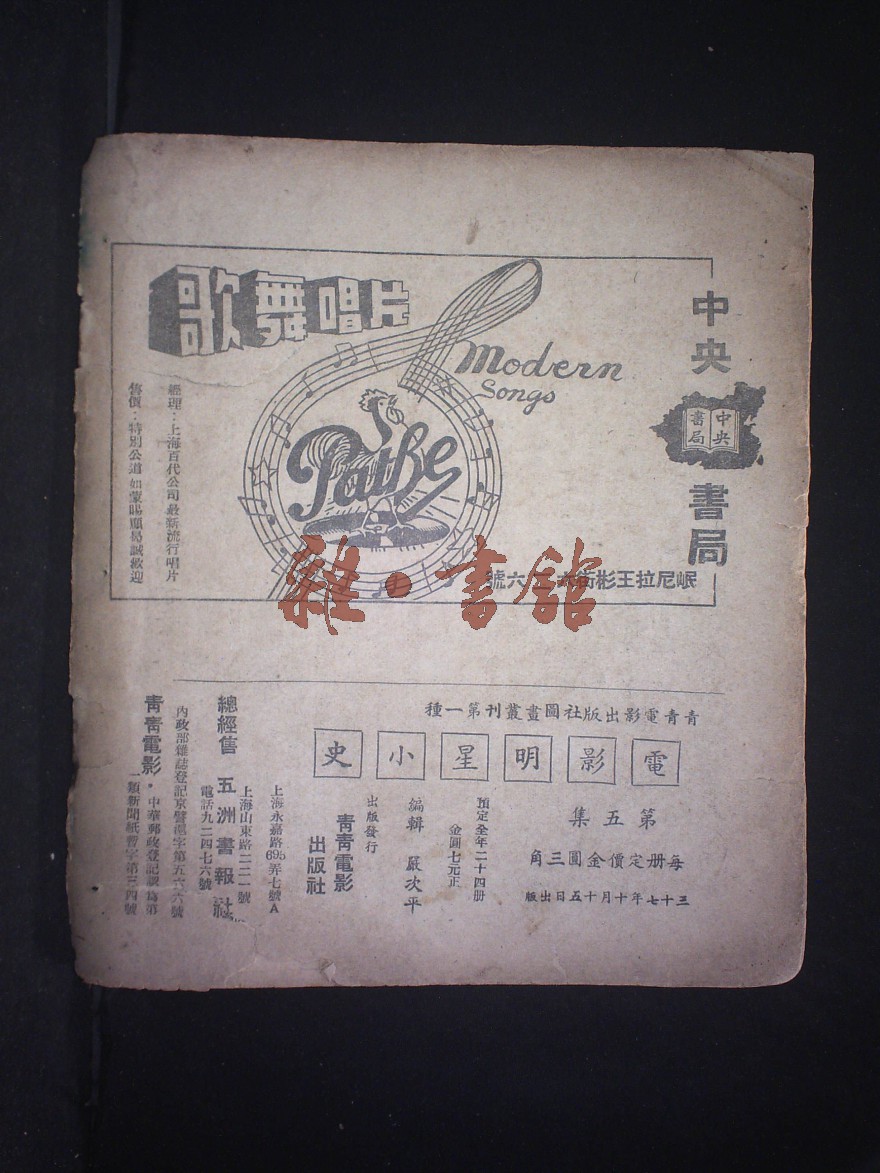 歌舞唱片
Modern
Songs
Pathe
經理：上海百代公司最新流行唱片
售價：特別公道如蒙賜顧曷誠歡迎
中央
中央
書局
書局
岷尼拉王彬街
六號
雜·書館
青青電影出版社圖畫叢刊第一種
電影明星小史
第五集
每册定價金圓三角
三十七年十月十五日出版
預定全年二十四册
金圓七元正
編輯 嚴次平
出版發行
青青電影
出版社
上海永嘉路695弄七號A
總經售 五洲書報社
上海山東路二二一號
電話九二四七六號
內政部雜誌登記京警滬字第五六六號
青青電影·中華郵政登記認為第
一類新聞紙暫字第三四號